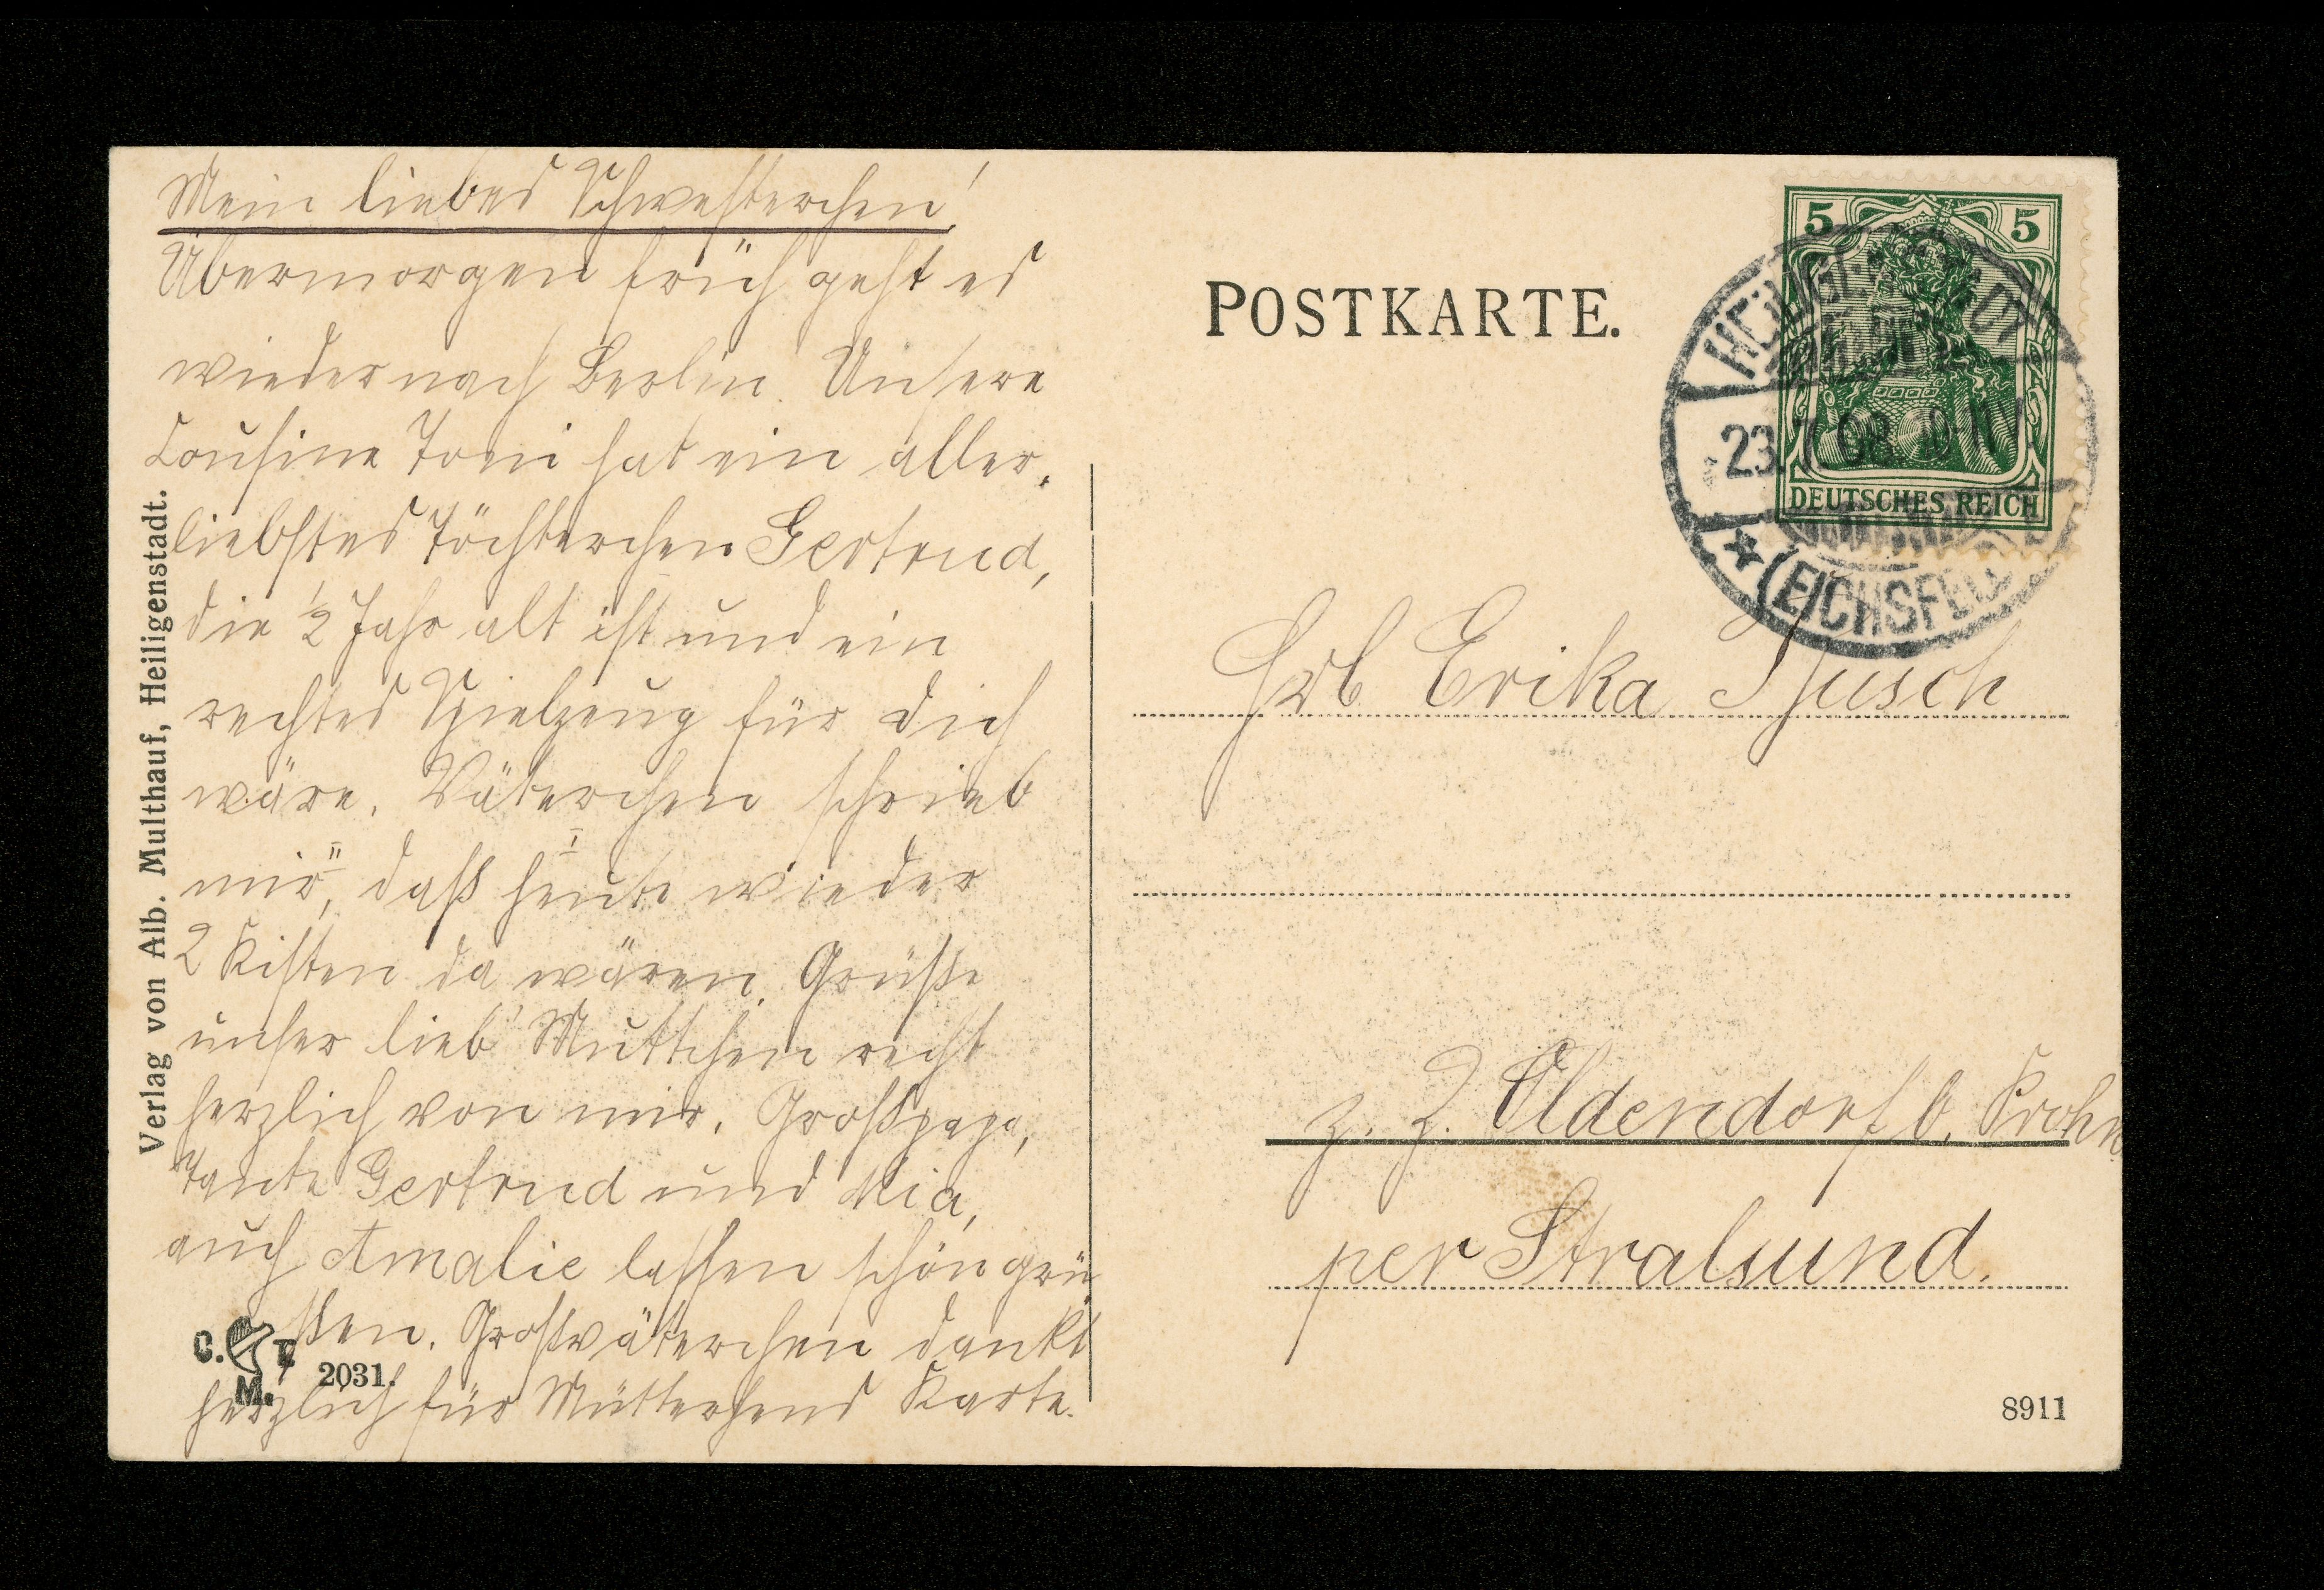 Mein liebes Schwesterchen!
Übermorgen früh geht es
wieder nach Berlin. Unsere
Cousine Toni hat ein aller-
liebstes Töchterchen Gertrud,
die ½ Jahr alt ist und ein
rechtes Spielzeug für dich
wäre. Väterchen schrieb
mir, daß heute wieder
2 Kisten da wären. Grüße
unser lieb' Muttchen recht
herzlich von mir. Großpapa,
Tante Gertrud und Mia,
auch Amalie lassen schön grü-
ßen. Großväterchen dankt
herzlich für Mütterchens Karte.
Verlag von Alb. Multhauf, Heiligenstadt.
C. T.
M. 2031.
POSTKARTE.
5 5
DEUTSCHES REICH
HEILIGENSTADT
23.7.08
(EICHSFELD)
Frl. Erika
z. Z. Oldendorf b.
per Stralsund.
8911